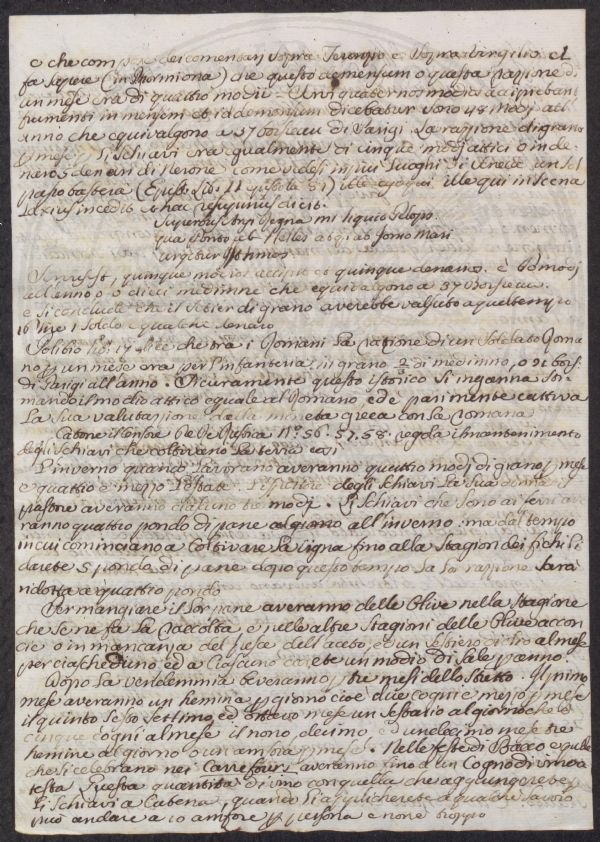 e che compose dei comentarj sopra Terenzio e sopra Virgilio ci
fa sapere (in Phormiona) che questo demensum o questa razzione di
un mese era di quattro modii
frumenti in mensem et id demensum dicebatur sono 48 modj all
anno che equivalgono a 37 boisseau di Parigi. La razzione di grano
mese, li schiavi era egualmente di cinque modj attici o in de
naro 5 denari di Nerone come vedesi in
(Epist. Lib. 11 ille qui in scena
Latius incedit et hac resupinus dicit.
Superbus regna mi liquit Pelops
qua Ponto ab Helles atq; ab Ionio Mari
urgetur Isthmos
quinque modios accipit et quinque denarios. è 60 modj
all anno o dieci medimne che equivalgono a 37 Boisseau.
e si conclude che il setier di grano averebbe valsuto a quel tempo
16 lire 1 soldo e qualche denaro
Polibio che tra i Romani la razione di un soldato Roma
no un mese era per l'infanteria, in grano 2/3 di medimino, o 21 bois:
di Parigi all'anno. Sicuramente questo istorico si inganna for
mando il modio attico eguale al Romano ed è parimente cattiva
la sua valutazione della moneta greca con la Romana
Catone il Censore De Re Rustica N.º 56. 57. 58. regola il mantenimento
degli schiavi che coltivano la terra così
L'inverno quando lavorano averanno quattro modj di grano mese
e quattro e mezzo l'estate. degli schiavi la sua donna il
pastore averanno ciascuno tre modj. Li schiavi che sono ai ferri av
ranno quattro pondo di pane al giorno all'inverno: ma dal tempo
in cui cominciano a coltivare la vigna fino alla stagion dei fichi li
darete 5 pondo di pane dopo questo tempo la razzione sarà
ridotta a quattro pondo
Per mangiare il lor pane averanno delle Olive nella stagione
che se ne fa la raccolta, e nelle altre stagioni delle Olive accon
cie o in mancanza del pesce dell'aceto, ed un sestiero di olio al mese
per ciascheduno ed a ciascuno darete un modio di sale anno.
Dopo la vendemmia beveranno tre mesi dello Il primo
mese averanno un hemina giorno cioè due cogni e mezzo mese
il quinto sesto settimo, ed ottavo mese un sestario al giorno che è
cinque cogni al mese il nono, decimo ed undecimo mese tre
hemine al giorno o un amfora mese. Nelle feste di Bacco e quelle
che si celebrano nei Carrefour averanno fino a un Cogno di vino a
testa questa quantità di vino con quella che aggiungerete
Li schiavi a Catena, quando li applicherete a qualche lavoro
può andare a 10 amfore persona e non è troppo